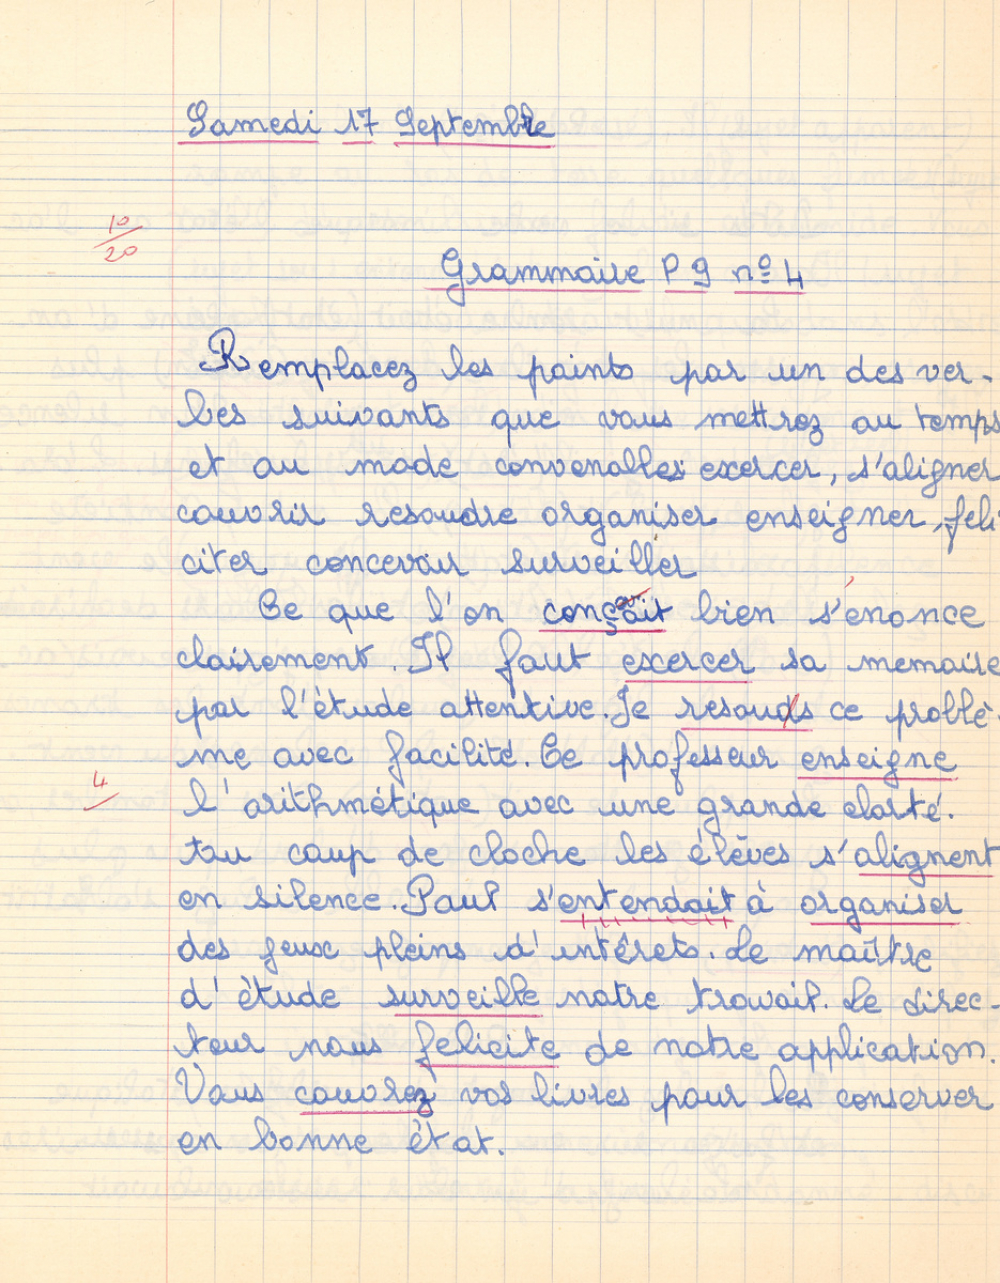 Samedi 17 Septembre
10
20
Grammaire P 9 nº 4
Remplacez les points par un des ver-
bes suivants que vous mettrez au temps
et au mode convenables exercer, s'aligner
couvrir resoudre organiser enseigner, feli
citer concevoir surveiller
Ce que l'on conçoit bien s'enonce
clairement. Il faut exercer sa memoire
par l'étude attentive. Je resouds ce problè-
me avec facilité. Ce professeur enseigne
4
l'arithmétique avec une grande clarté.
au coup de cloche les élèves s'alignent
en silence. Paul s'entendait à organiser
des jeux pleins d'intérets. Le maître
d'étude surveille notre travail. Le direc-
teur nous felicite de notre application.
Vous couvrez vos livres pour les conserver
en bonne état.